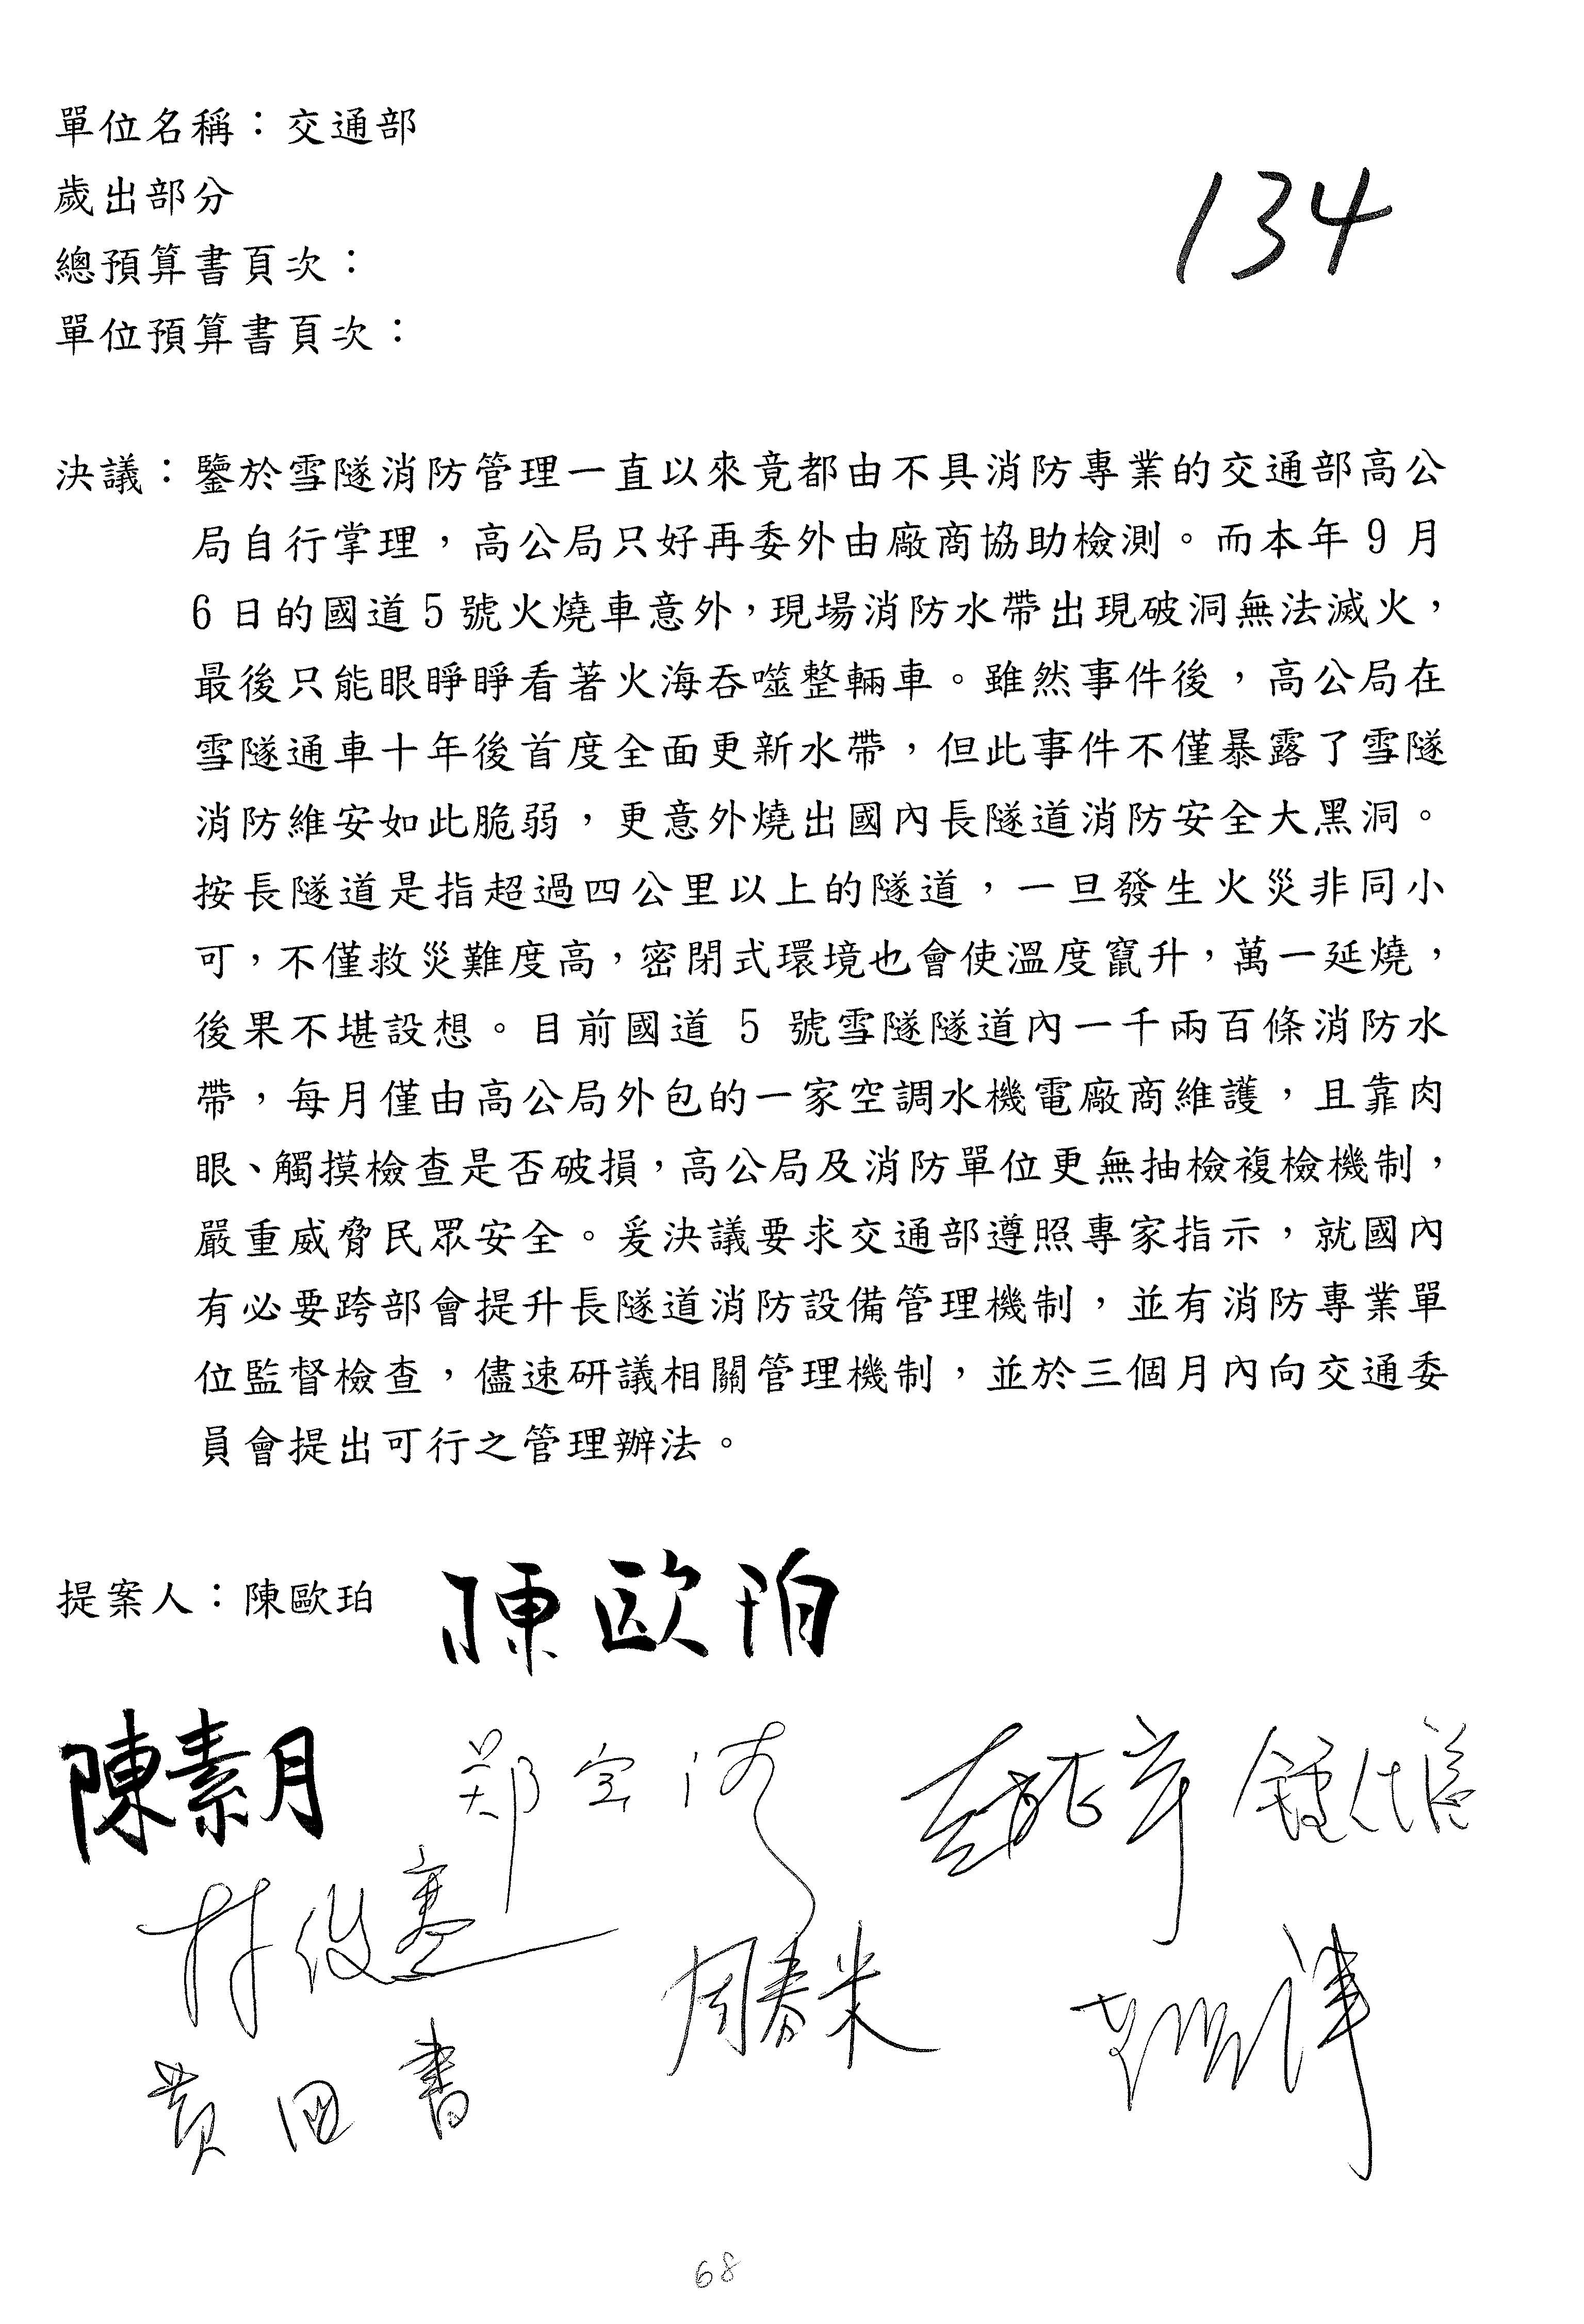 單位名稱：交通部
歲出部分
134
總預算書頁次：
單位預算書頁次：
決議：鑒於雪隧消防管理一直以來竟都由不具消防專業的交通部高公
局自行掌理，高公局只好再委外由廠商協助檢測。而本年9月
6日的國道5號火燒車意外，現場消防水帶出現破洞無法滅火，
最後只能眼睜睜看著火海吞噬整輛車。雖然事件後，高公局在
雪隧通車十年後首度全面更新水帶，但此事件不僅暴露了雪隧
消防維安如此脆弱，更意外燒出國內長隧道消防安全大黑洞。
按長隧道是指超過四公里以上的隧道，一旦發生火災非同小
可，不僅救災難度高，密閉式環境也會使溫度竄升，萬一延燒，
後果不堪設想。目前國道 5 號雪隧隧道內一千兩百條消防水
帶，每月僅由高公局外包的一家空調水機電廠商維護，且靠肉
眼、觸摸檢查是否破損，高公局及消防單位更無抽檢複檢機制，
嚴重威脅民眾安全。爰決議要求交通部遵照專家指示，就國內
有必要跨部會提升長隧道消防設備管理機制，並有消防專業單
位監督檢查，儘速研議相關管理機制，並於三個月內向交通委
員會提出可行之管理辦法。
提案人：陳歐珀 陳歐珀
陳素月 郑宝清
林俊憲 周春米
黃國書
68